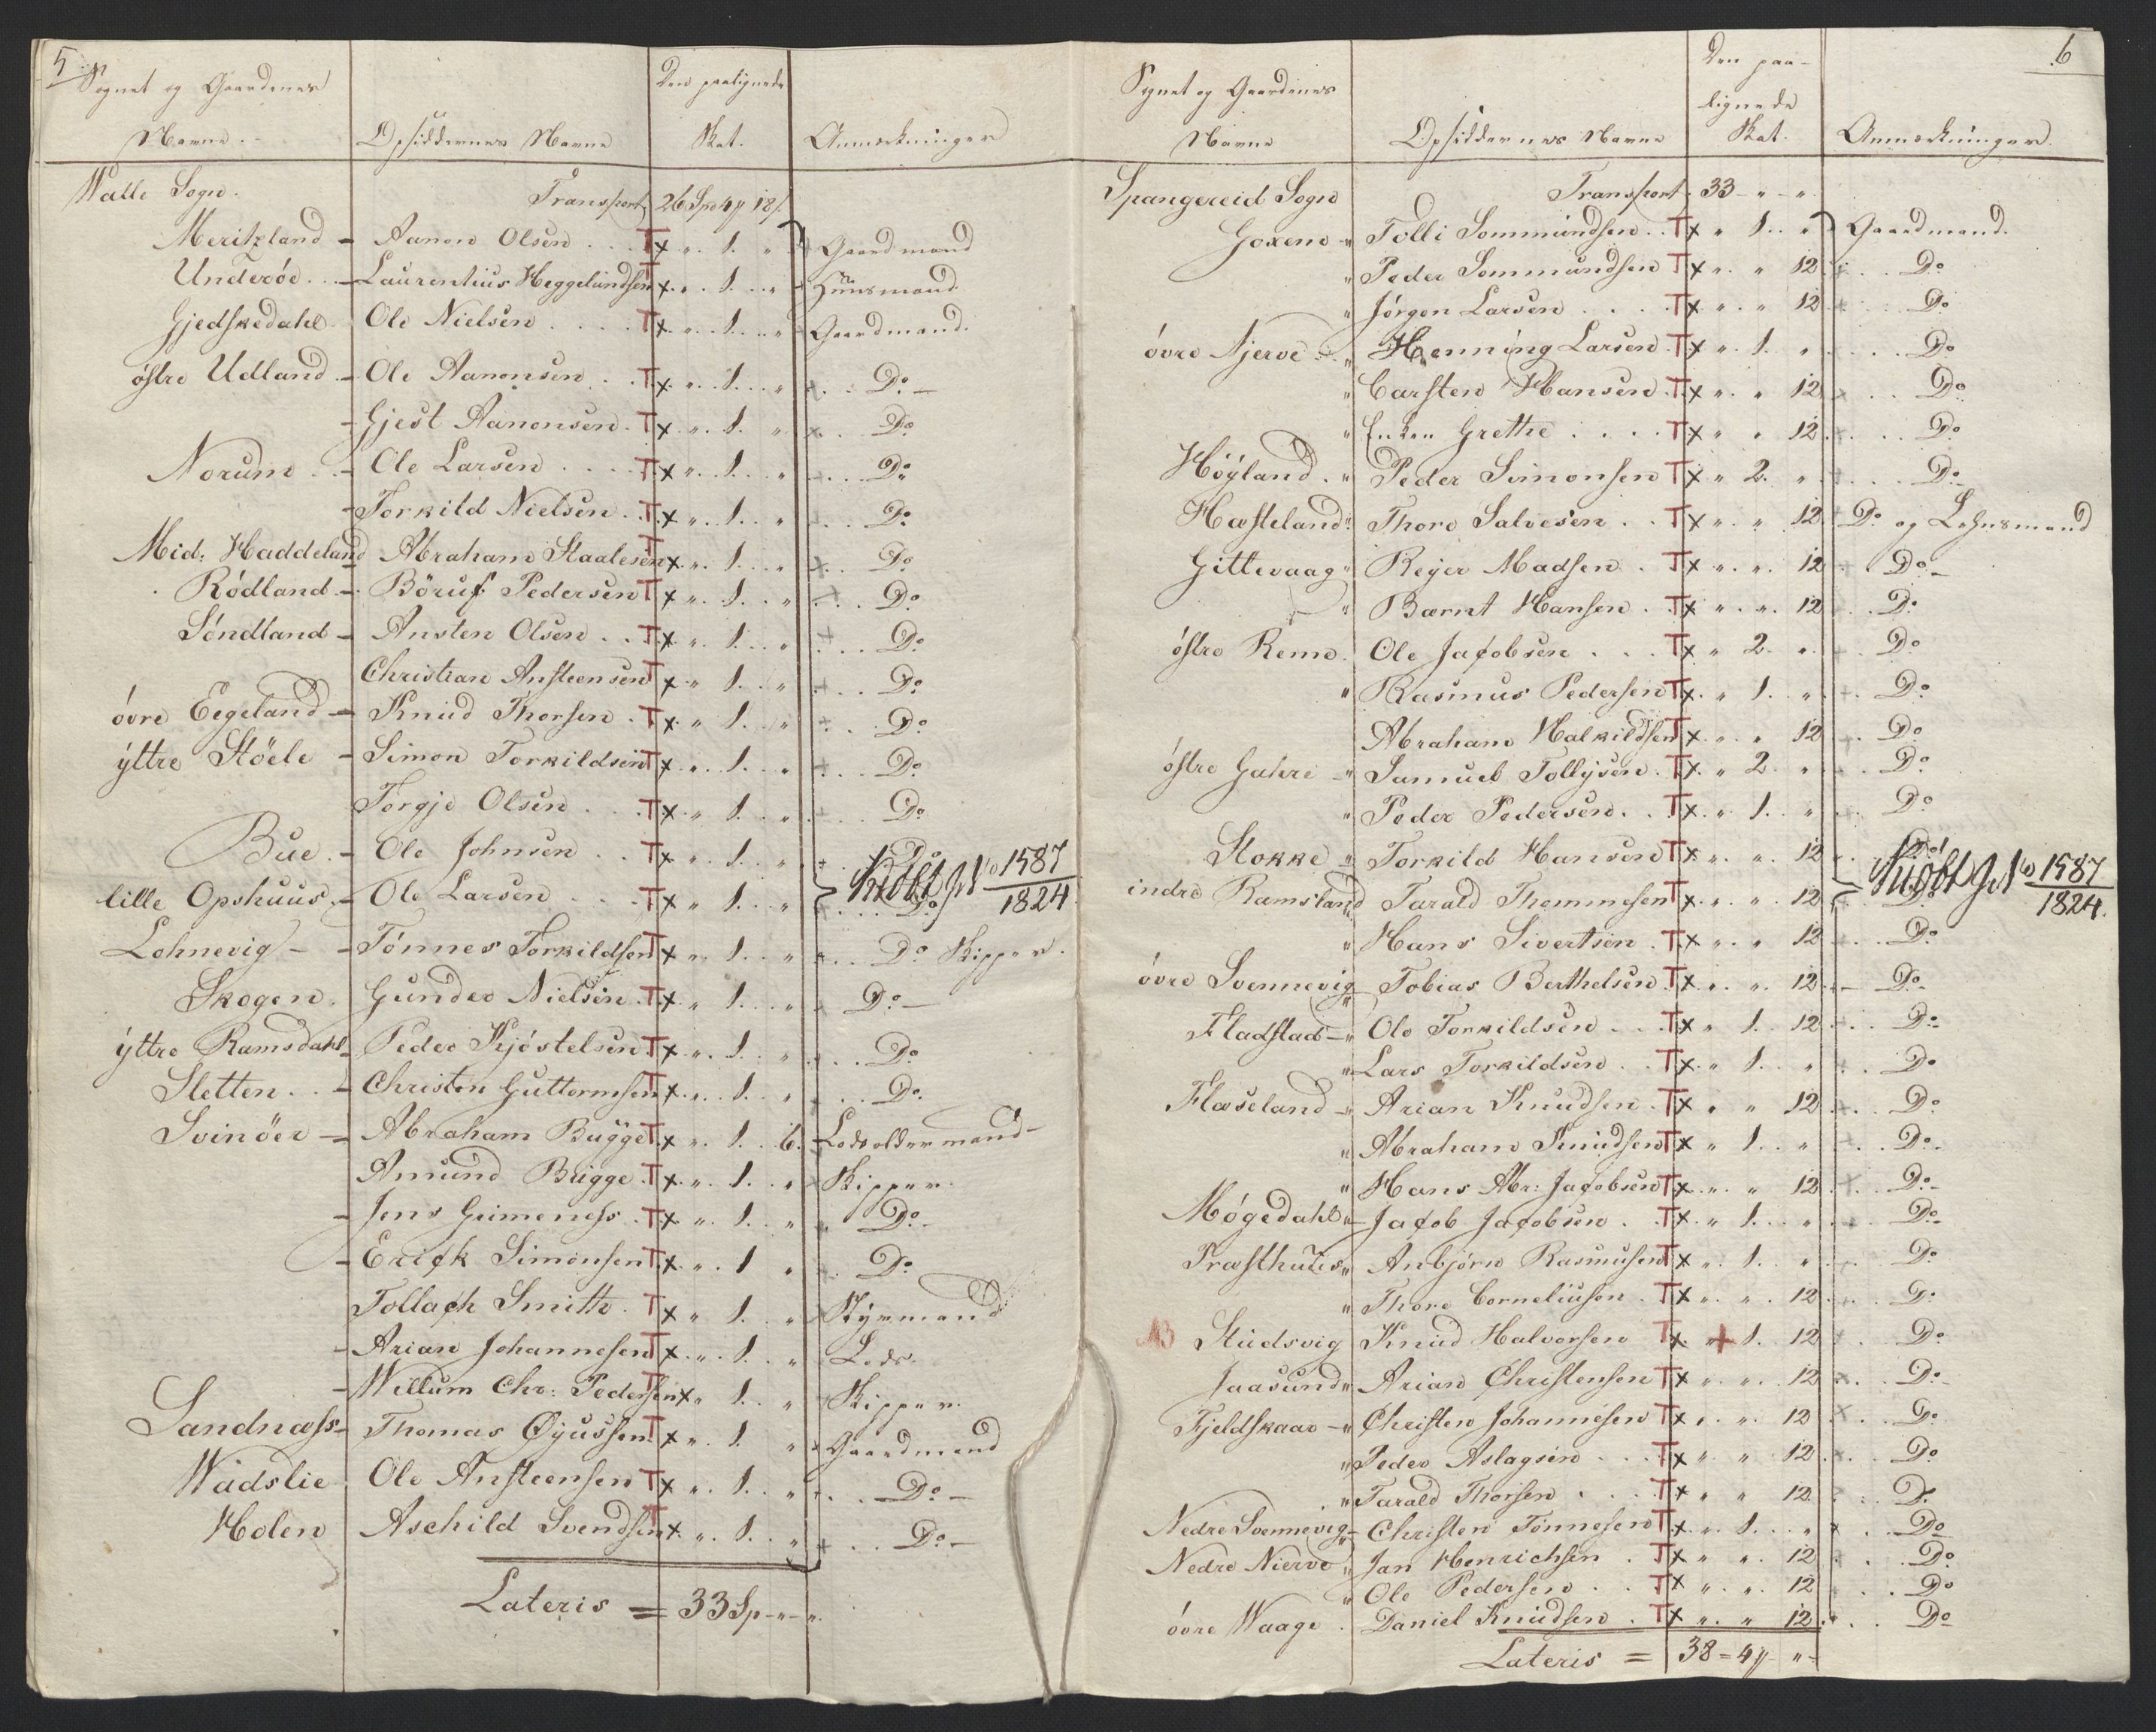 5
Sognet og Gaardenes
Navne.
Opsiddernes Navne
Den paalignede
Skat.
Anmærkninger
Walle Sogn.
Transport 26 Spd 4 # 18 s.
Meritzland - Aanon Olsen . . T x " 1. " Gaardmand
Underöe . . - Laurentius Heggelundsen T x " 1. " Huusmand
Gjedskedahl Ole Nielsen . . . . T x " 1. " Gaardmand.
östre Udland - Ole Aanonsen . . T x " 1. " x . . Do -
- Gjest Aanonsen . T x " 1. " x . . Do
Norum . . - Ole Larsen . . . . T x " 1. " + . . . Do
- Torkild Nielsen . . T x " 1. " + . . . Do
Mid: Haddeland Abraham Staalesen T x " 1. " x . . Do
Rödland - Böruf Pedersen T x " 1. " + . . . Do
Söndland - Ansten Olsen . . T x " 1. " + . . . Do
Christian Ansteensen T x " 1. " + . . . Do
övre Eegeland - Knud Thorsen . T x " 1. " + . . Do
ÿttre Stöele - Simon Torkildsen T x " 1. " + . . . Do
Torgje Olsen . . . T x " 1. " + . . . Do
Bue . - Ole Johnsen . . T x " 1. " + . . Do
lille Opshuus . - Ole Larsen . . . T x " 1. " + . . . Do
Kiöbt No 1587
1824
Lohnevig - - Tönnes Torkildsen T x " 1. " + . . . Do Skipper.
Skogen . Gunder Nielsen . T x " 1. " + Do -
ÿttre Ramsdahl - Peder Kjöstelsen T x " 1. " + . . . Do
Sletten . . - Christen Guttormsen T x " 1. " + . . Do.
Svinöer - - Abraham Bugge T x " 1. 6. - Lodsoldermand -
Amund Bugge . T x " 1. " Skipper.
- Jens Grimeness . T x " 1. " " Do -
- Erick Simonsen T x " 1 " + . Do
Tollach Smith . T x " 1. " Styrmand
- Arian Johannesen T x " 1. " Lods.
- Willum Chr: Pedersen T x " 1. " Skipper.
Sandness - Thomas Öyussen T x " 1. " Gaardmand
Wadslie Ole Ansteensen T x " 1. " + . . Do -
Holen Aschild Svendsen T x " 1. " + . . Do -
Lateris = 33 Sp - " - ".
6
Sognet og Gaardenes
Navne
Opsiddernes Navne
Den paa-
lignede
Skat.
Anmærkninger.
Spangereid Sogn
Transport . 33 - " - ".
Goxem " Tolli Sommundsen . . T x " 1. . " Gaardmand.
" Peder Sommundsen T x " . " 12 + . . Do
" Jörgen Larsen . . . . T x " . " 12 + . . Do
övre Njerve . . " Henning Larsen . T x " 1. " . . . . Do
" Carsten Hansen . T x " . " 12 x . . Do
" Enken Grethe . . . . T x " " 12 + . . . Do
Höÿland . " Peder Simonsen T x " 2. " + . . . Do -
Hæsteland " Thore Salvesen . . T x " . " 12 + Do og Lehnsmand
Gittevaag " Reÿer Madsen . T x " . " . 12 + Do -
" Bærnt Hansen . . T x " . " . 12 . . Do
östre Reme . Ole Jacobsen . . . T x " 2. " + . Do
" Rasmus Pedersen T x " 1. " + . Do
Abraham Halkildsen T x " . " 12 + . Do
östre Gahre - " Samuel Tollÿsen . T x " 2 " + . . Do
" Peder Pedersen . . T x " 1. " + . . Do
Stokke " Torkild Hansen T x " . " . 12 . . Do
indre Ramsland " Tarald Themmesen T x " . " . 12 . . Do
Kiöbt No 1587
1824.
" Hans Sivertsen . T x " . " 12 + . . Do
övre Svennevig " Tobias Berthelsen . T x " . " . 12 - Do -
Fladstad - " Ole Torkildsen . . . T x " 1. 12 + . . Do -
" Lars Torkildsen . . T x " 1. " + . . Do
Flæseland - " Arian Knudsen . T x " " 12 + . . Do
" Abraham Knudsen T x " 1. " + . . Do -
" Hans Abr: Jacobsen T x " . " 12 + . . Do -
Mögedahl " - Jacob Jacobsen . . T x " 1. . . " + . Do -
Præsthuus " Anbjörn Rasmusen T x " 1. " + . Do
" Thore Corneliusen . T x " . " . 12 + . . Do
Studsvig Knud Halvorsen T x " + 1. 12 + . . Do
Jaasund " Arian Christensen T x " . " . 12 x . . Do -
Fjeldskaar - " Christen Johannesen T x " . " . 12 x . . Do
" Peder Aslagsen . . . T x " . " 12 + . . Do
" Tarald Thorsen . . . . T x " " 12 . . . Do
Nedre Svennevig - Christen Tönnesen T x " 1. . . " x . . Do
Nedre Nierve " Jan Henrichsen . T x " " . 12 + . . Do
" Ole Pedersen . . T x " . " . 12 + . . Do
övre Waage . Daniel Knudsen . T x " . " 12 . + . . Do
Lateris = 38 = 4 # - " -